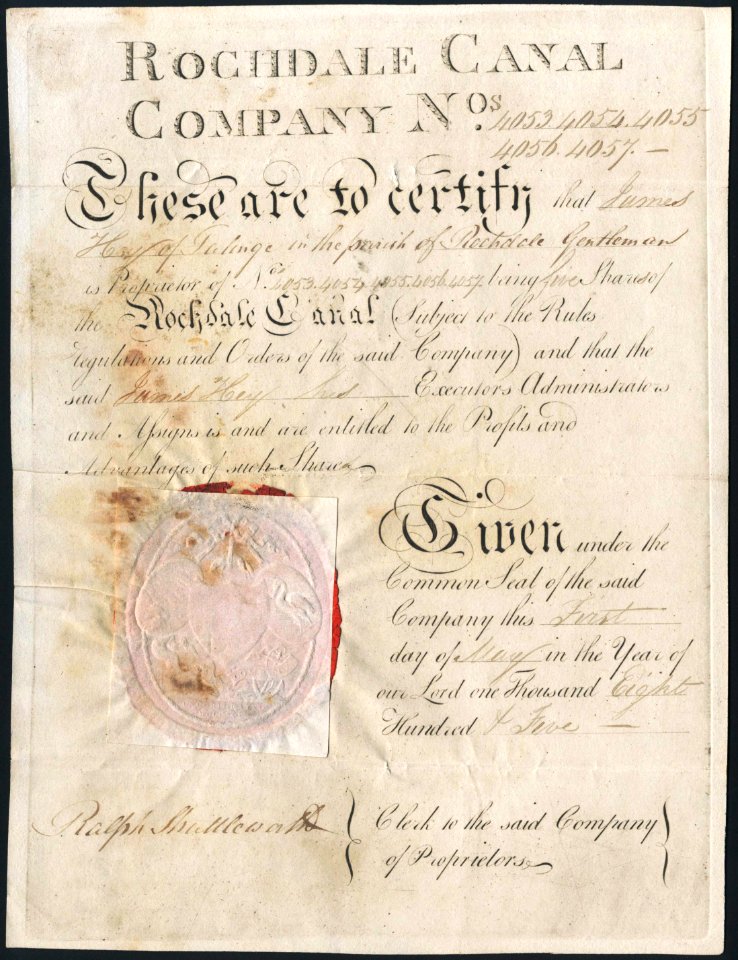 ROCHDALE CANAL
COMPANY Nos. 4053. 4054. 4055
4056. 4057. —
These are to certify that James
Hey of Falinge in the parish of Rochdale Gentleman
is Proprietor of Nos. 4053. 4054. 4055. 4056. 4057. being five Shares of
the Rochdale Canal (Subject to the Rules
regulations and Orders of the said Company) and that the
said James Hey his Executors Administrators
and Assigns is and are entitled to the Profits and
Advantages of such Shares
Given under the
Common Seal of the said
Company this First
day of May in the Year of
our Lord one Thousand Eight
Hundred & Five —
Ralph Shuttleworth { Clerk to the said Company }
of Proprietors